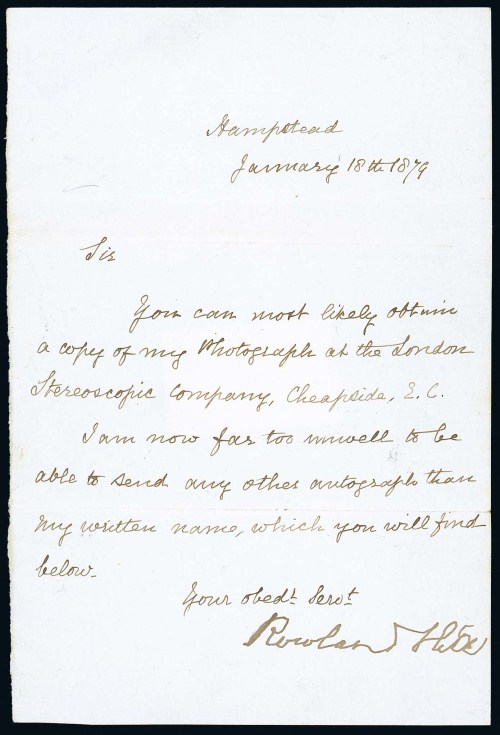 Hampstead
January 18th 1879
Sir
You can most likely obtain
a copy of my Photograph at the London
Stereoscopic Company, Cheapside, E.C.
I am now far too unwell to be
able to send any other autograph than
my written name, which you will find
below.
Your obedt Servt
Rowland Hill